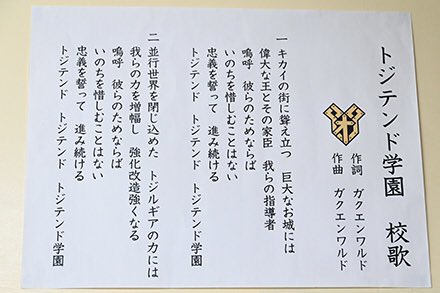 トジテンド学園　校歌
作詞　ガクエンワルド
作曲　ガクエンワルド
一 キカイの街に聳え立つ　巨大なお城には
偉大な王とその家臣　我らの指導者
嗚呼　彼らのためならば
いのちを惜しむことはない
忠義を誓って　進み続ける
トジテンド　トジテンド　トジテンド学園
二 並行世界を閉じ込めた　トジルギアの力には
我らの力を増幅し　強化改造強くなる
嗚呼　彼らのためならば
いのちを惜しむことはない
忠義を誓って　進み続ける
トジテンド　トジテンド　トジテンド学園